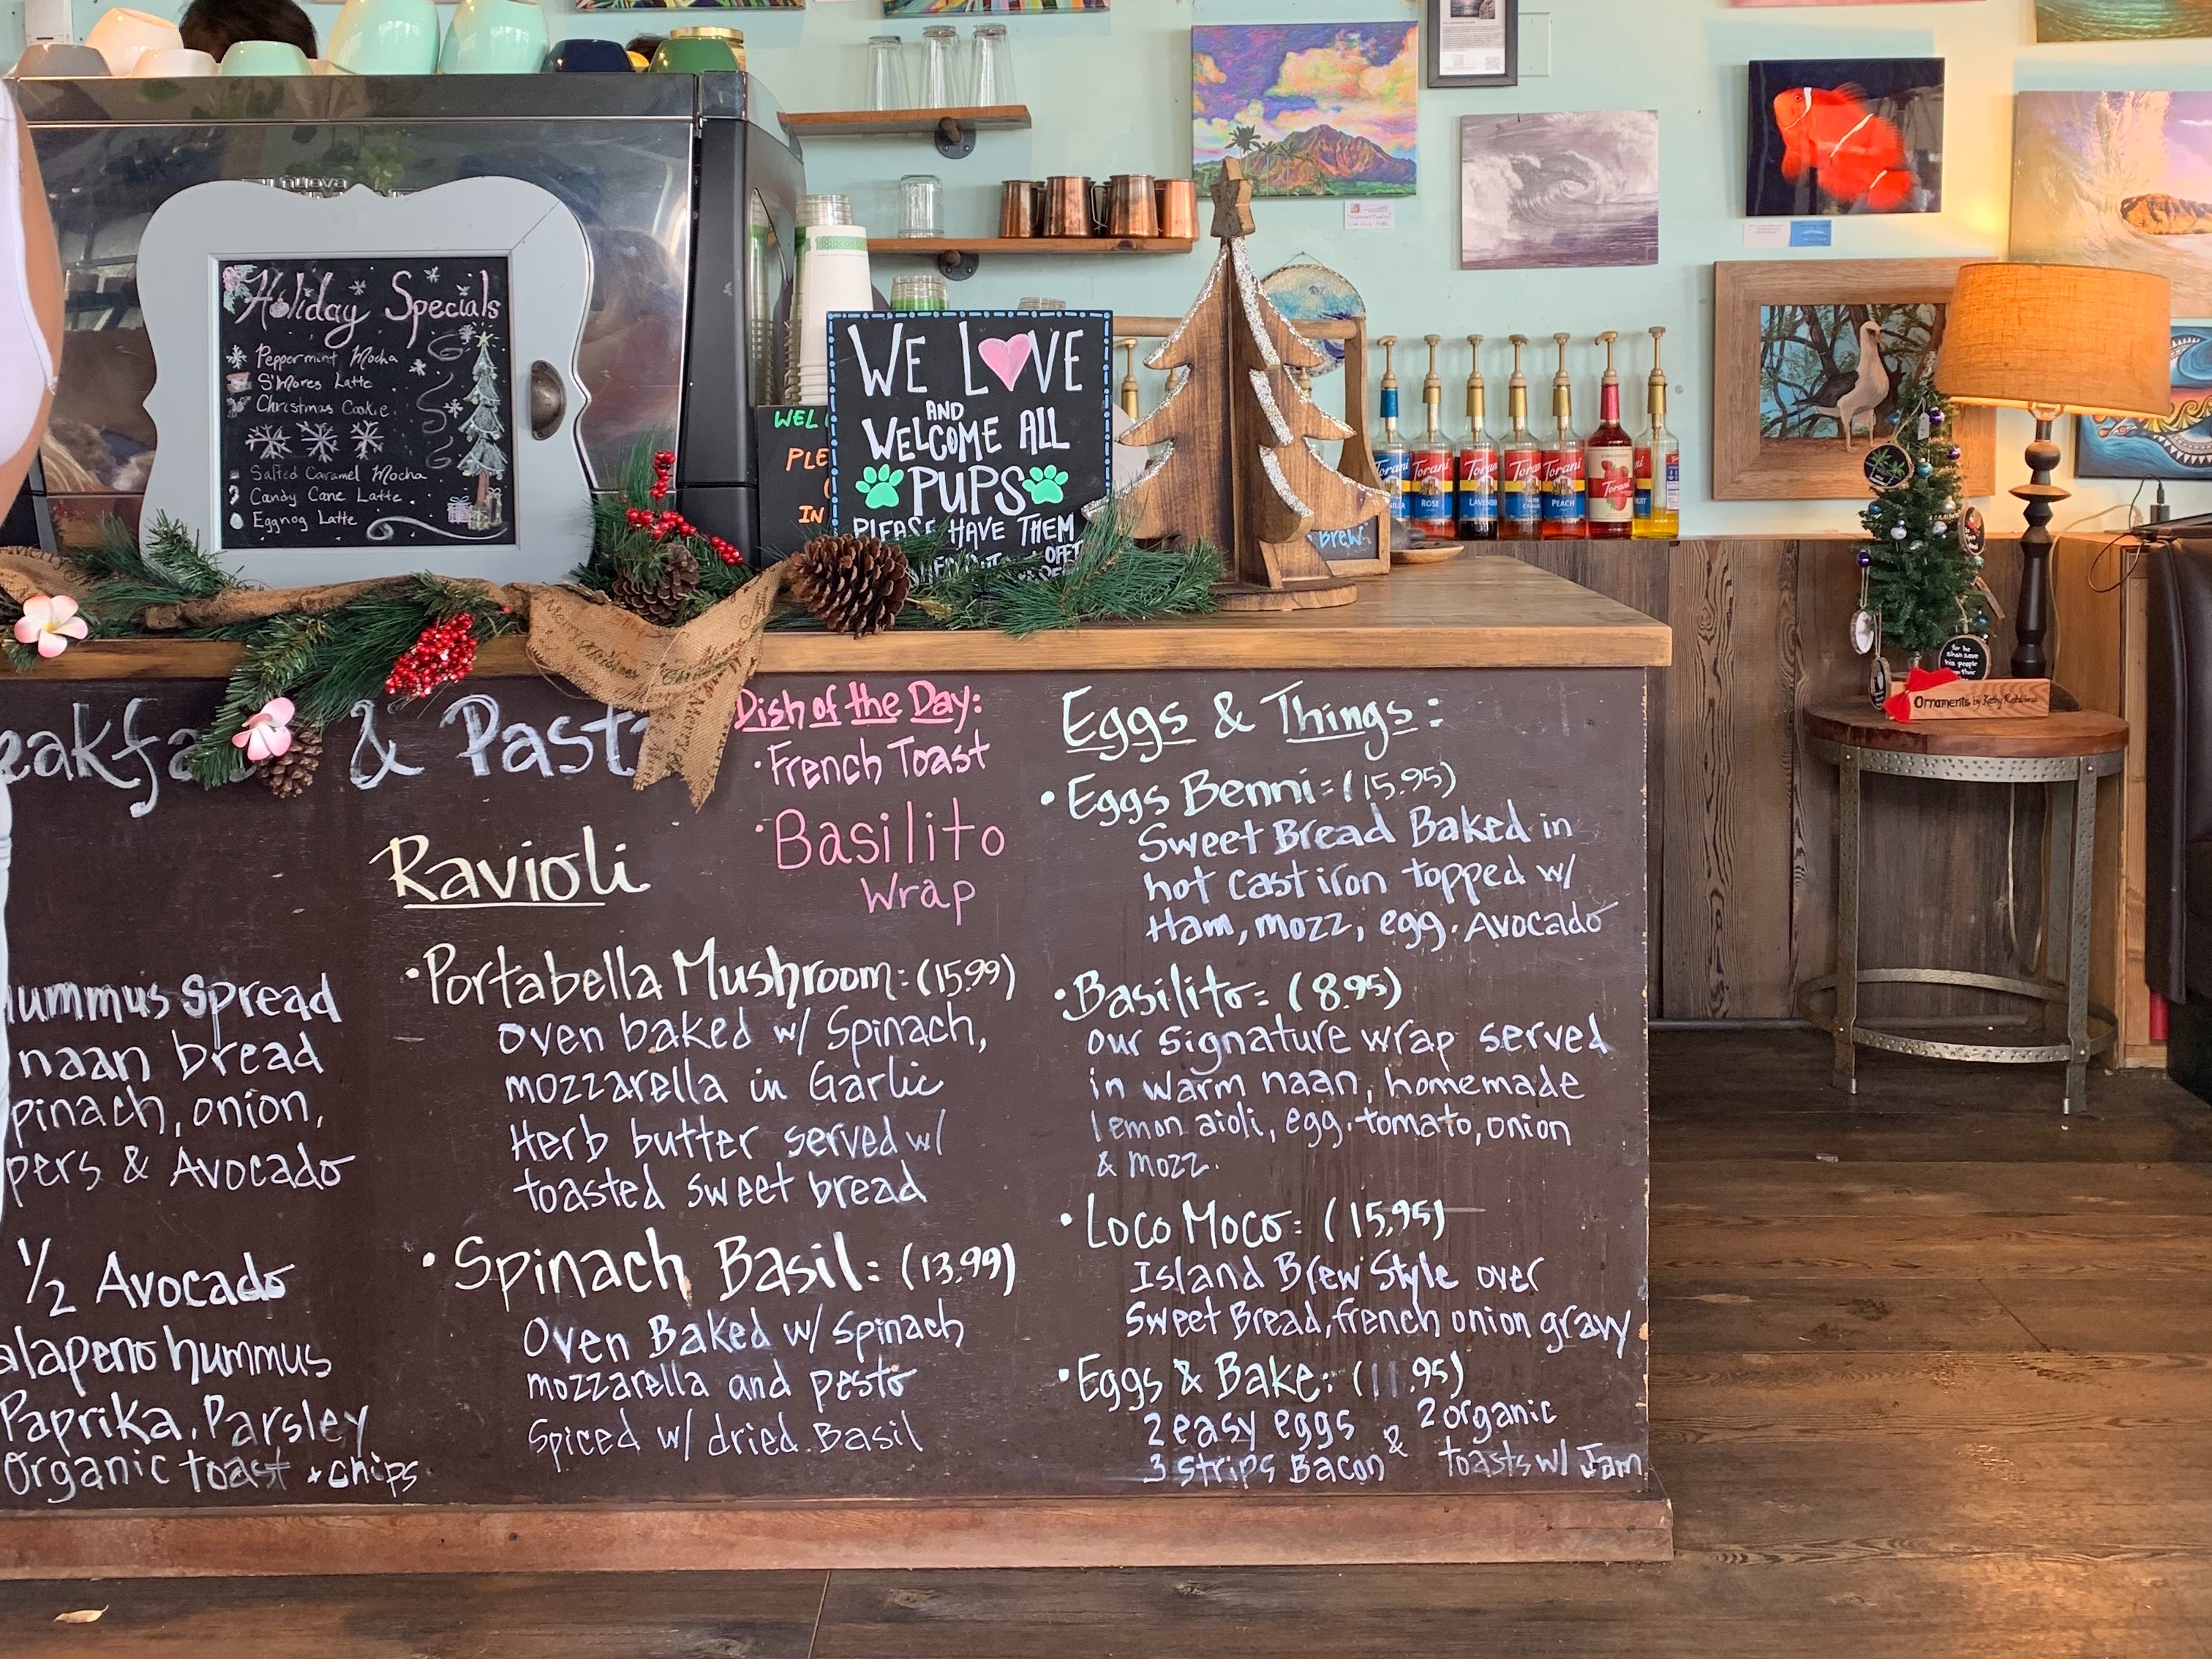 Holiday Specials
Peppermint Mocha
S'Mores Latte
Christmas Cookie
Salted Caramel Mocha
Candy Cane Latte
Eggnog Latte
WEL
PLE
IN
WE LOVE
AND
WELCOME ALL
PUPS
PLEASE HAVE THEM
BREW
Torani
ROSE
Torani
LAVENDER
Torani
Torani
PEACH
Torani
Ornaments by
for he
shall save
his people
Merry Christmas
eakfa & Pasta
ummus Spread
naan bread
pinach, onion,
pers & Avocado
1/2 Avocado
alapeno hummus
Paprika, Parsley
Organic toast + chips
Ravioli
• Portabella Mushroom: (15.99)
oven baked w/ Spinach,
mozzarella in Garlic
Herb butter served w/
toasted sweet bread
• Spinach Basil: (13.99)
Oven Baked w/ Spinach
mozzarella and pesto
Spiced w/ dried Basil
Dish of the Day:
• French Toast
• Basilito
Wrap
Eggs & Things:
• Eggs Benni: (15.95)
Sweet Bread Baked in
hot cast iron topped w/
Ham, mozz, egg. Avocado
• Basilito: (8.95)
our signature wrap served
in warm naan, homemade
lemon aioli, egg. tomato, onion
& mozz.
• Loco Moco: (15.95)
Island Brew Style over
Sweet Bread, french onion gravy
• Eggs & Bake: (11.95)
2 easy eggs & 2 organic
3 strips Bacon toasts w/ Jam